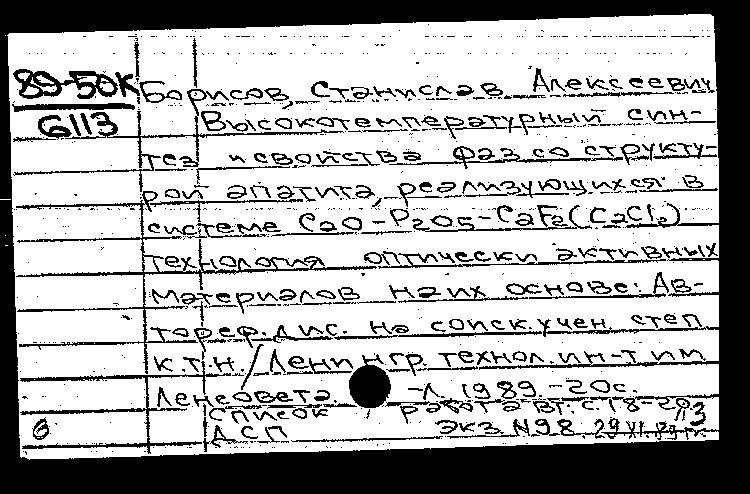 89-50К
6113
Борисов, Станислав Алексеевич
Высокотемпературный син-
тез и свойства фаз со структу-
рой апатита, реализующихся в
системе CaO-P2O5-CaF2(CaCl2)
технология оптически активных
материалов на их основе: Ав-
тореф. дис. на соиск. учен. степ
к.т.н. / Ленингр. технол. ин-т им
Ленсовета. -Л. 1989 -20с.
список работ авт. с. 18-20
ДСП Экз. N98. 29 XI.